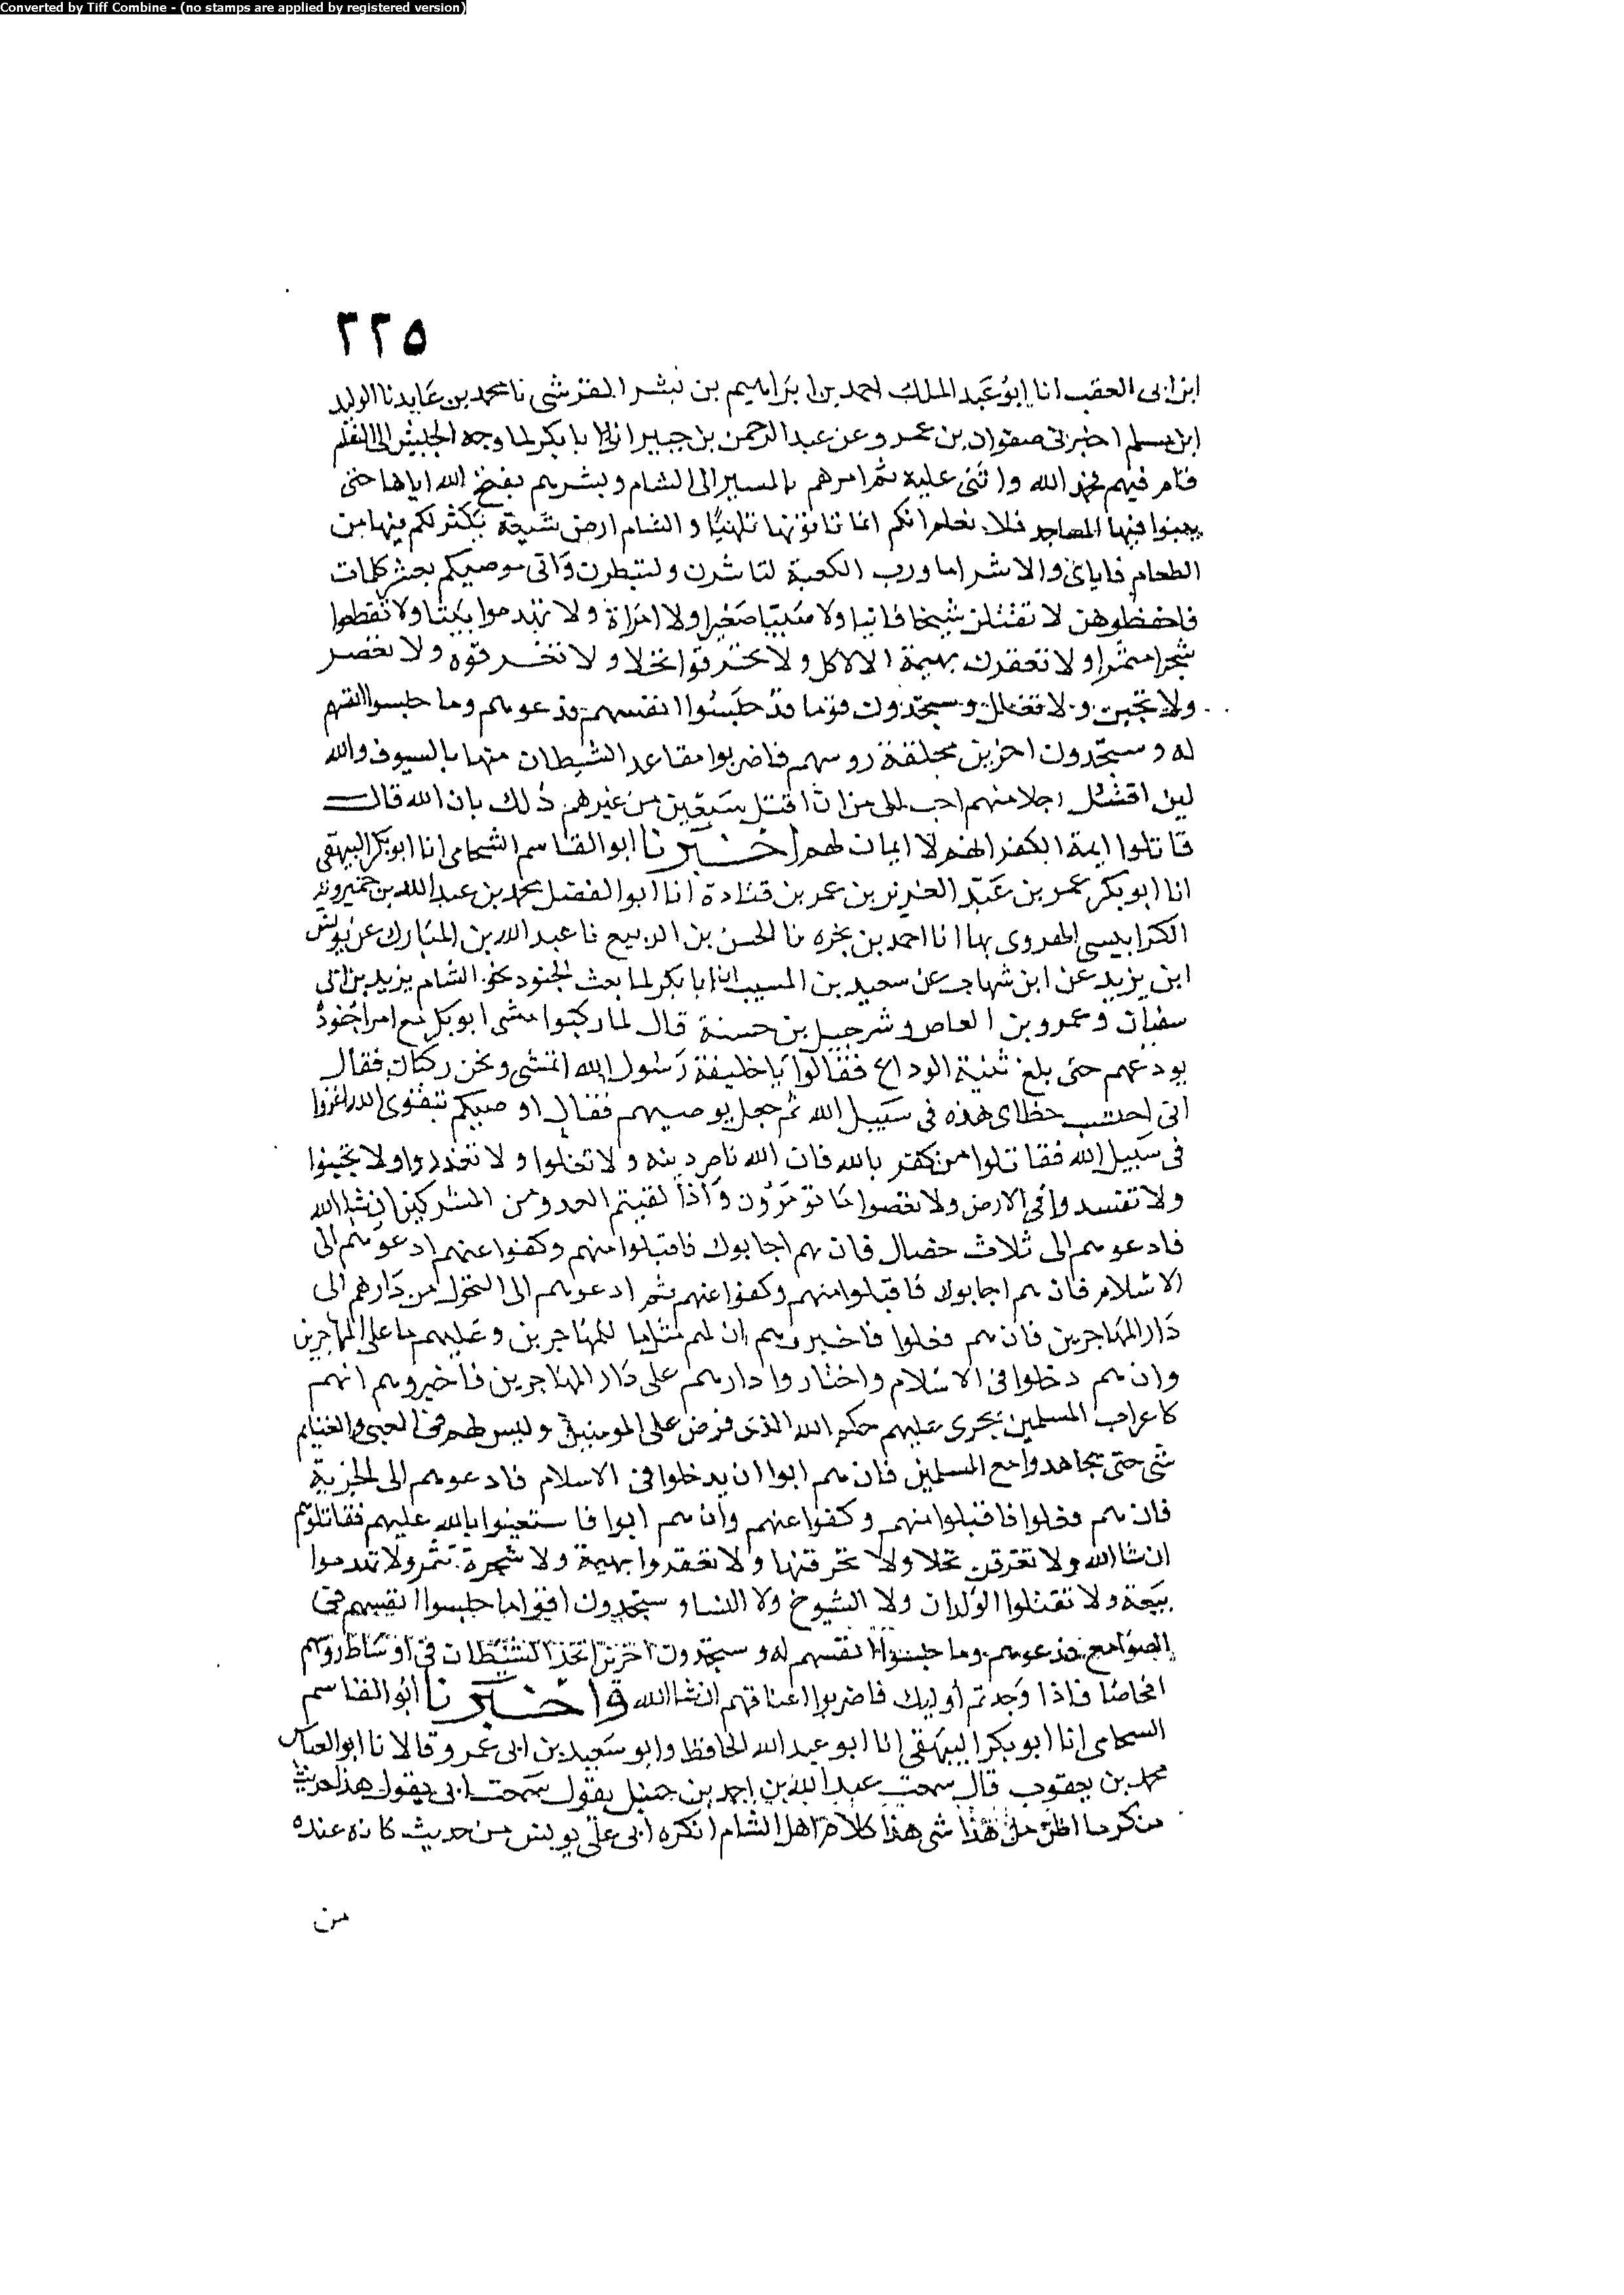 Converted by Tiff Combine - (no stamps are applied by registered version)
٣٢٥
ابن ابى العقب انا ابو عبد الملك احمد بن ابراهيم بن بشر القرشى نا محمد بن عايد نا الوليد
ابن مسلم اخبرنى صفوان بن عمرو عن عبد الرحمن بن جبير ان ابا بكر لما وجه الجيش الى الشام
قام فيهم فحمد الله واثنى عليه ثم امرهم بالمسير الى الشام وبشرهم بفتح الله اياها حتى
يبنوا فيها المساجد فلا نعلم انكم انما تاتونها تلهيا والشام ارض شبيعة يكثر لكم فيها من
الطعام فاياى والاشر اما ورب الكعبة لتاشرن ولتبطرن وانى موصيكم بعشر كلمات
فاحفظوهن لا تقتلن شيخا فانيا ولا صبيا صغيرا ولا امراة ولا تهدموا بيتا ولا تقطعوا
شجرا مثمرا ولا تعقرن بهيمة الا لاكل ولا تحرقوا نخلا ولا تغرقوه ولا تقصر
ولا تجبن ولا تغلل وستجدون قوما قد حبسوا انفسهم فدعوهم وما حبسوا انفسهم
له وستجدون اخرين محلقة روسهم فاضربوا مقاعد الشيطان منها بالسيوف والله
لين اقتل رجلا منهم احب الى من ان اقتل سبعين من غيرهم ذلك بان الله قال
قاتلوا ايمة الكفر انهم لا ايمان لهم اخبرنا ابو القاسم الشحامى انا ابو بكر البيهقى
انا ابو بكر عمر بن عبد العزيز بن عمر بن قتادة انا ابو الفضل محمد بن عبد الله بن خميرويه
الكرابيسى الهروى بها انا احمد بن نجده نا الحسن بن الربيع نا عبد الله بن المبارك عن يونس
ابن يزيد عن ابن شهاب عن سعيد بن المسيب ان ابا بكر لما بعث الجنود نحو الشام يزيد بن ابى
سفيان وعمرو بن العاص وشرحبيل بن حسنة قال لما ركبوا مشى ابو بكر مع امرا جنوده
يودعهم حتى بلغ ثنية الوداع فقالوا يا خليفة رسول الله اتمشى ونحن ركبان فقال
انى احتسب خطاى هذه فى سبيل الله ثم جعل يوصيهم فقال اوصيكم بتقوى الله اغزوا
فى سبيل الله فقاتلوا من كفر بالله فان الله ناصر دينه ولا تغلوا ولا تغدروا ولا تجبنوا
ولا تفسدوا فى الارض ولا تعصوا ما تومرون واذا لقيتم العدو من المشركين ان شا الله
فادعوهم الى ثلاث خصال فان هم اجابوك فاقبلوا منهم وكفوا عنهم ادعوهم الى
الاسلام فان هم اجابوك فاقبلوا منهم وكفوا عنهم ثم ادعوهم الى التحول من دارهم الى
دار المهاجرين فان هم فعلوا فاخبروهم ان لهم مثل ما للمهاجرين وعليهم ما على المهاجرين
وان هم دخلوا فى الاسلام واختاروا دارهم على دار المهاجرين فاخبروهم انهم
كاعراب المسلمين يجرى عليهم حكم الله الذى فرض على المومنين وليس لهم فى الفى والغنايم
شى حتى يجاهدوا مع المسلمين فان هم ابوا ان يدخلوا فى الاسلام فادعوهم الى الجزية
فان هم فعلوا فاقبلوا منهم وكفوا عنهم وان هم ابوا فاستعينوا بالله عليهم فقاتلوهم
ان شا الله ولا تغرقن نخلا ولا تحرقنها ولا تعقروا بهيمة ولا شجرة تثمر ولا تهدموا
بيعة ولا تقتلوا الولدان ولا الشيوخ ولا النسا وستجدون اقواما حبسوا انفسهم فى
الصوامع فدعوهم وما حبسوا انفسهم له وستجدون اخرين اتخذ الشيطان فى اوساط روسهم
افحاصا فاذا وجدتم اوليك فاضربوا اعناقهم ان شا الله واخبرنا ابو القاسم
الشحامى انا ابو بكر البيهقى انا ابو عبد الله الحافظ وابو سعيد بن ابى عمرو قالا نا ابو العباس
محمد بن يعقوب قال سمعت عبد الله بن احمد بن حنبل يقول سمعت ابى يقول هذا حديث
منكر ما اظن من هذا شى هذا كلام اهل الشام انكره ابى على يونس من حديث كانه عنده
من